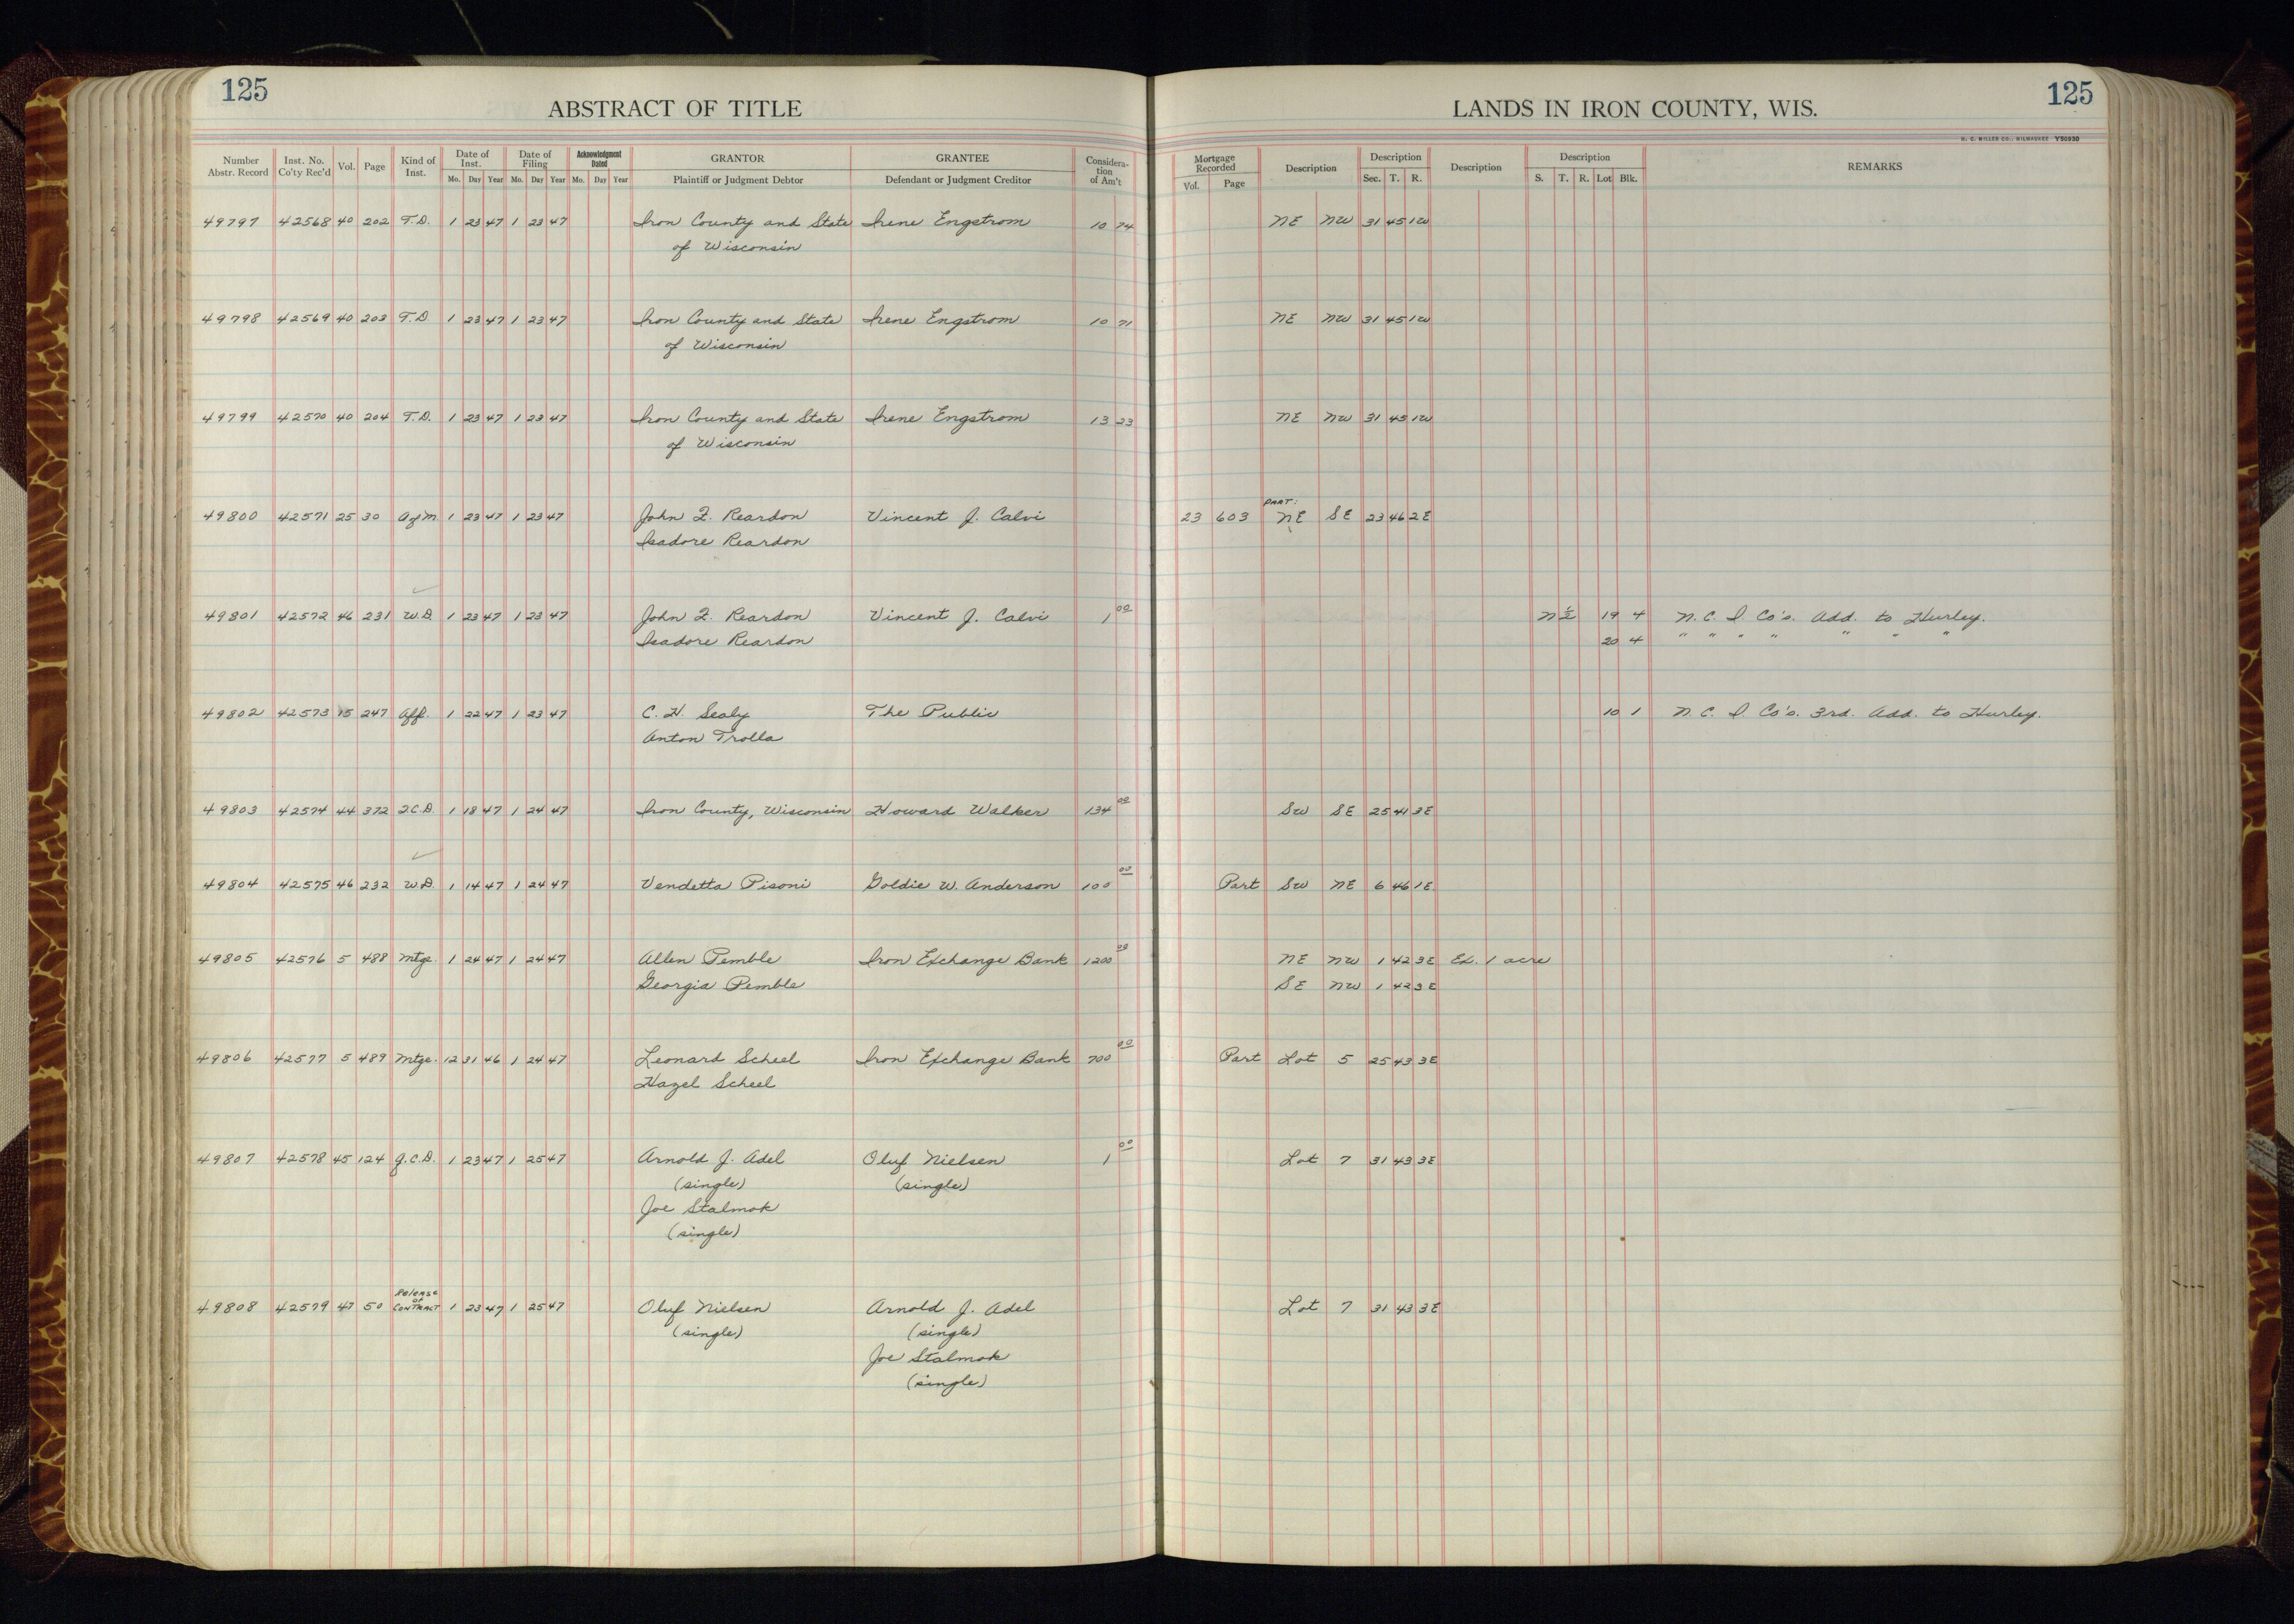 125
ABSTRACT OF TITLE
LANDS IN IRON COUNTY, WIS.
125
H. C. MILLER CO., MILWAUKEE Y50930
Number Abstr. Record Inst. No. Co'ty Rec'd Vol. Page Kind of Inst. Date of Inst. Mo. Day Year Date of Filing Mo. Day Year Acknowledgment Dated Mo. Day Year GRANTOR Plaintiff or Judgment Debtor GRANTEE Defendant or Judgment Creditor Considera-tion of Am't Mortgage Recorded Vol. Page Description Description Sec. T. R. Description Description S. T. R. Lot Blk. REMARKS
49797 42568 40 202 T.D. 1 23 47 1 23 47 Iron County and State Irene Engstrom 10 74 NE NW 31 45 1W
of Wisconsin
49798 42569 40 203 T.D. 1 23 47 1 23 47 Iron County and State Irene Engstrom 10 71 NE NW 31 45 1W
of Wisconsin
49799 42570 40 204 T.D. 1 23 47 1 23 47 Iron County and State Irene Engstrom 13 23 NE NW 31 45 1W
of Wisconsin
PART:
49800 42571 25 30 AofM. 1 23 47 1 23 47 John F. Reardon Vincent J. Calvi 23 603 NE SE 23 46 2E
Isadore Reardon
49801 42572 46 231 W.D. 1 23 47 1 23 47 John F. Reardon Vincent J. Calvi 1 00 N½ 19 4 N. C. I. Co's. Add. to Hurley.
Isadore Reardon 20 4 " " " " " " "
49802 42573 15 247 Aff. 1 22 47 1 23 47 C. H. Sealy The Public 10 1 N. C. I. Co's. 3rd. Add. to Hurley.
Anton Trolla
49803 42574 44 372 Q.C.D. 1 18 47 1 24 47 Iron County, Wisconsin Howard Walker 134 00 SW SE 25 41 3E
49804 42575 46 232 W.D. 1 14 47 1 24 47 Vendetta Pisoni Goldie W. Anderson 100 00 Part SW NE 6 46 1E.
49805 42576 5 488 Mtge. 1 24 47 1 24 47 Allen Pemble Iron Exchange Bank 1200 00 NE NW 1 42 3E Ex. 1 acre
Georgia Pemble SE NW 1 42 3E
49806 42577 5 489 Mtge. 12 31 46 1 24 47 Leonard Scheel Iron Exchange Bank 700 00 Part Lot 5 25 43 3E
Hazel Scheel
49807 42578 45 124 Q.C.D. 1 23 47 1 25 47 Arnold J. Adel Oluf Nielsen 1 00 Lot 7 31 43 3E
(single) (single)
Joe Stalmok
(single)
Release
of
49808 42579 47 50 CONTRACT 1 23 47 1 25 47 Oluf Nielsen Arnold J. Adel Lot 7 31 43 3E
(single) (single)
Joe Stalmok
(single)